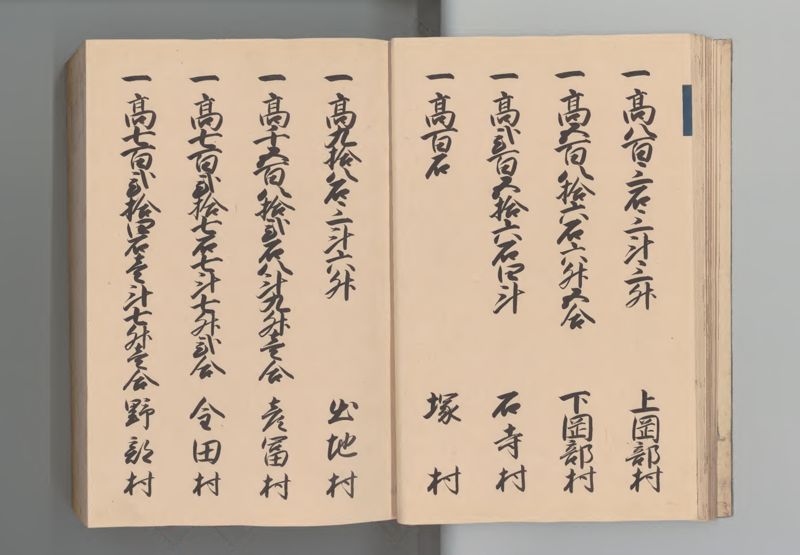 一高八百三石三斗三升 上岡部村
一高五百八拾六石六升五合 下岡部村
一高弐百五拾六石四斗 石寺村
一高百石 塚村
一高九拾八石三斗六升 出地村
一高千五百八拾弐石八斗九升壱合 彦冨村
一高七百弐拾七石七斗七升弐合 金田村
一高七百弐拾四石壱斗七升壱合 野部村